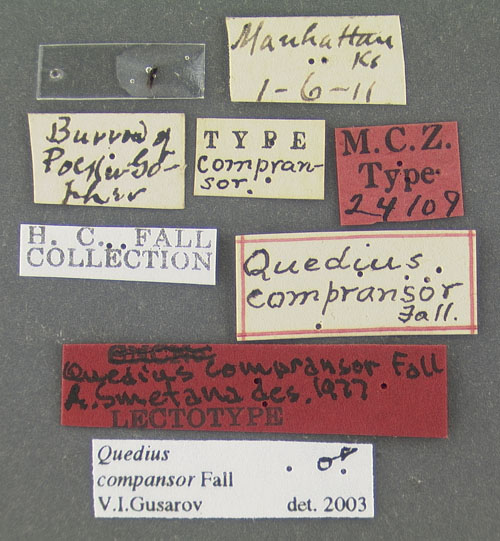 Manhattan
Ks
1-6-11
Burrow of
Pocket Go-
pher
TYPE
compran-
sor.
M.C.Z.
Type
24109
H. C. FALL
COLLECTION
Quedius
compransor
Fall.
Quedius compransor Fall
A. Smetana des. 1977
LECTOTYPE
Quedius
compansor Fall
V.I.Gusarov
♂
det. 2003